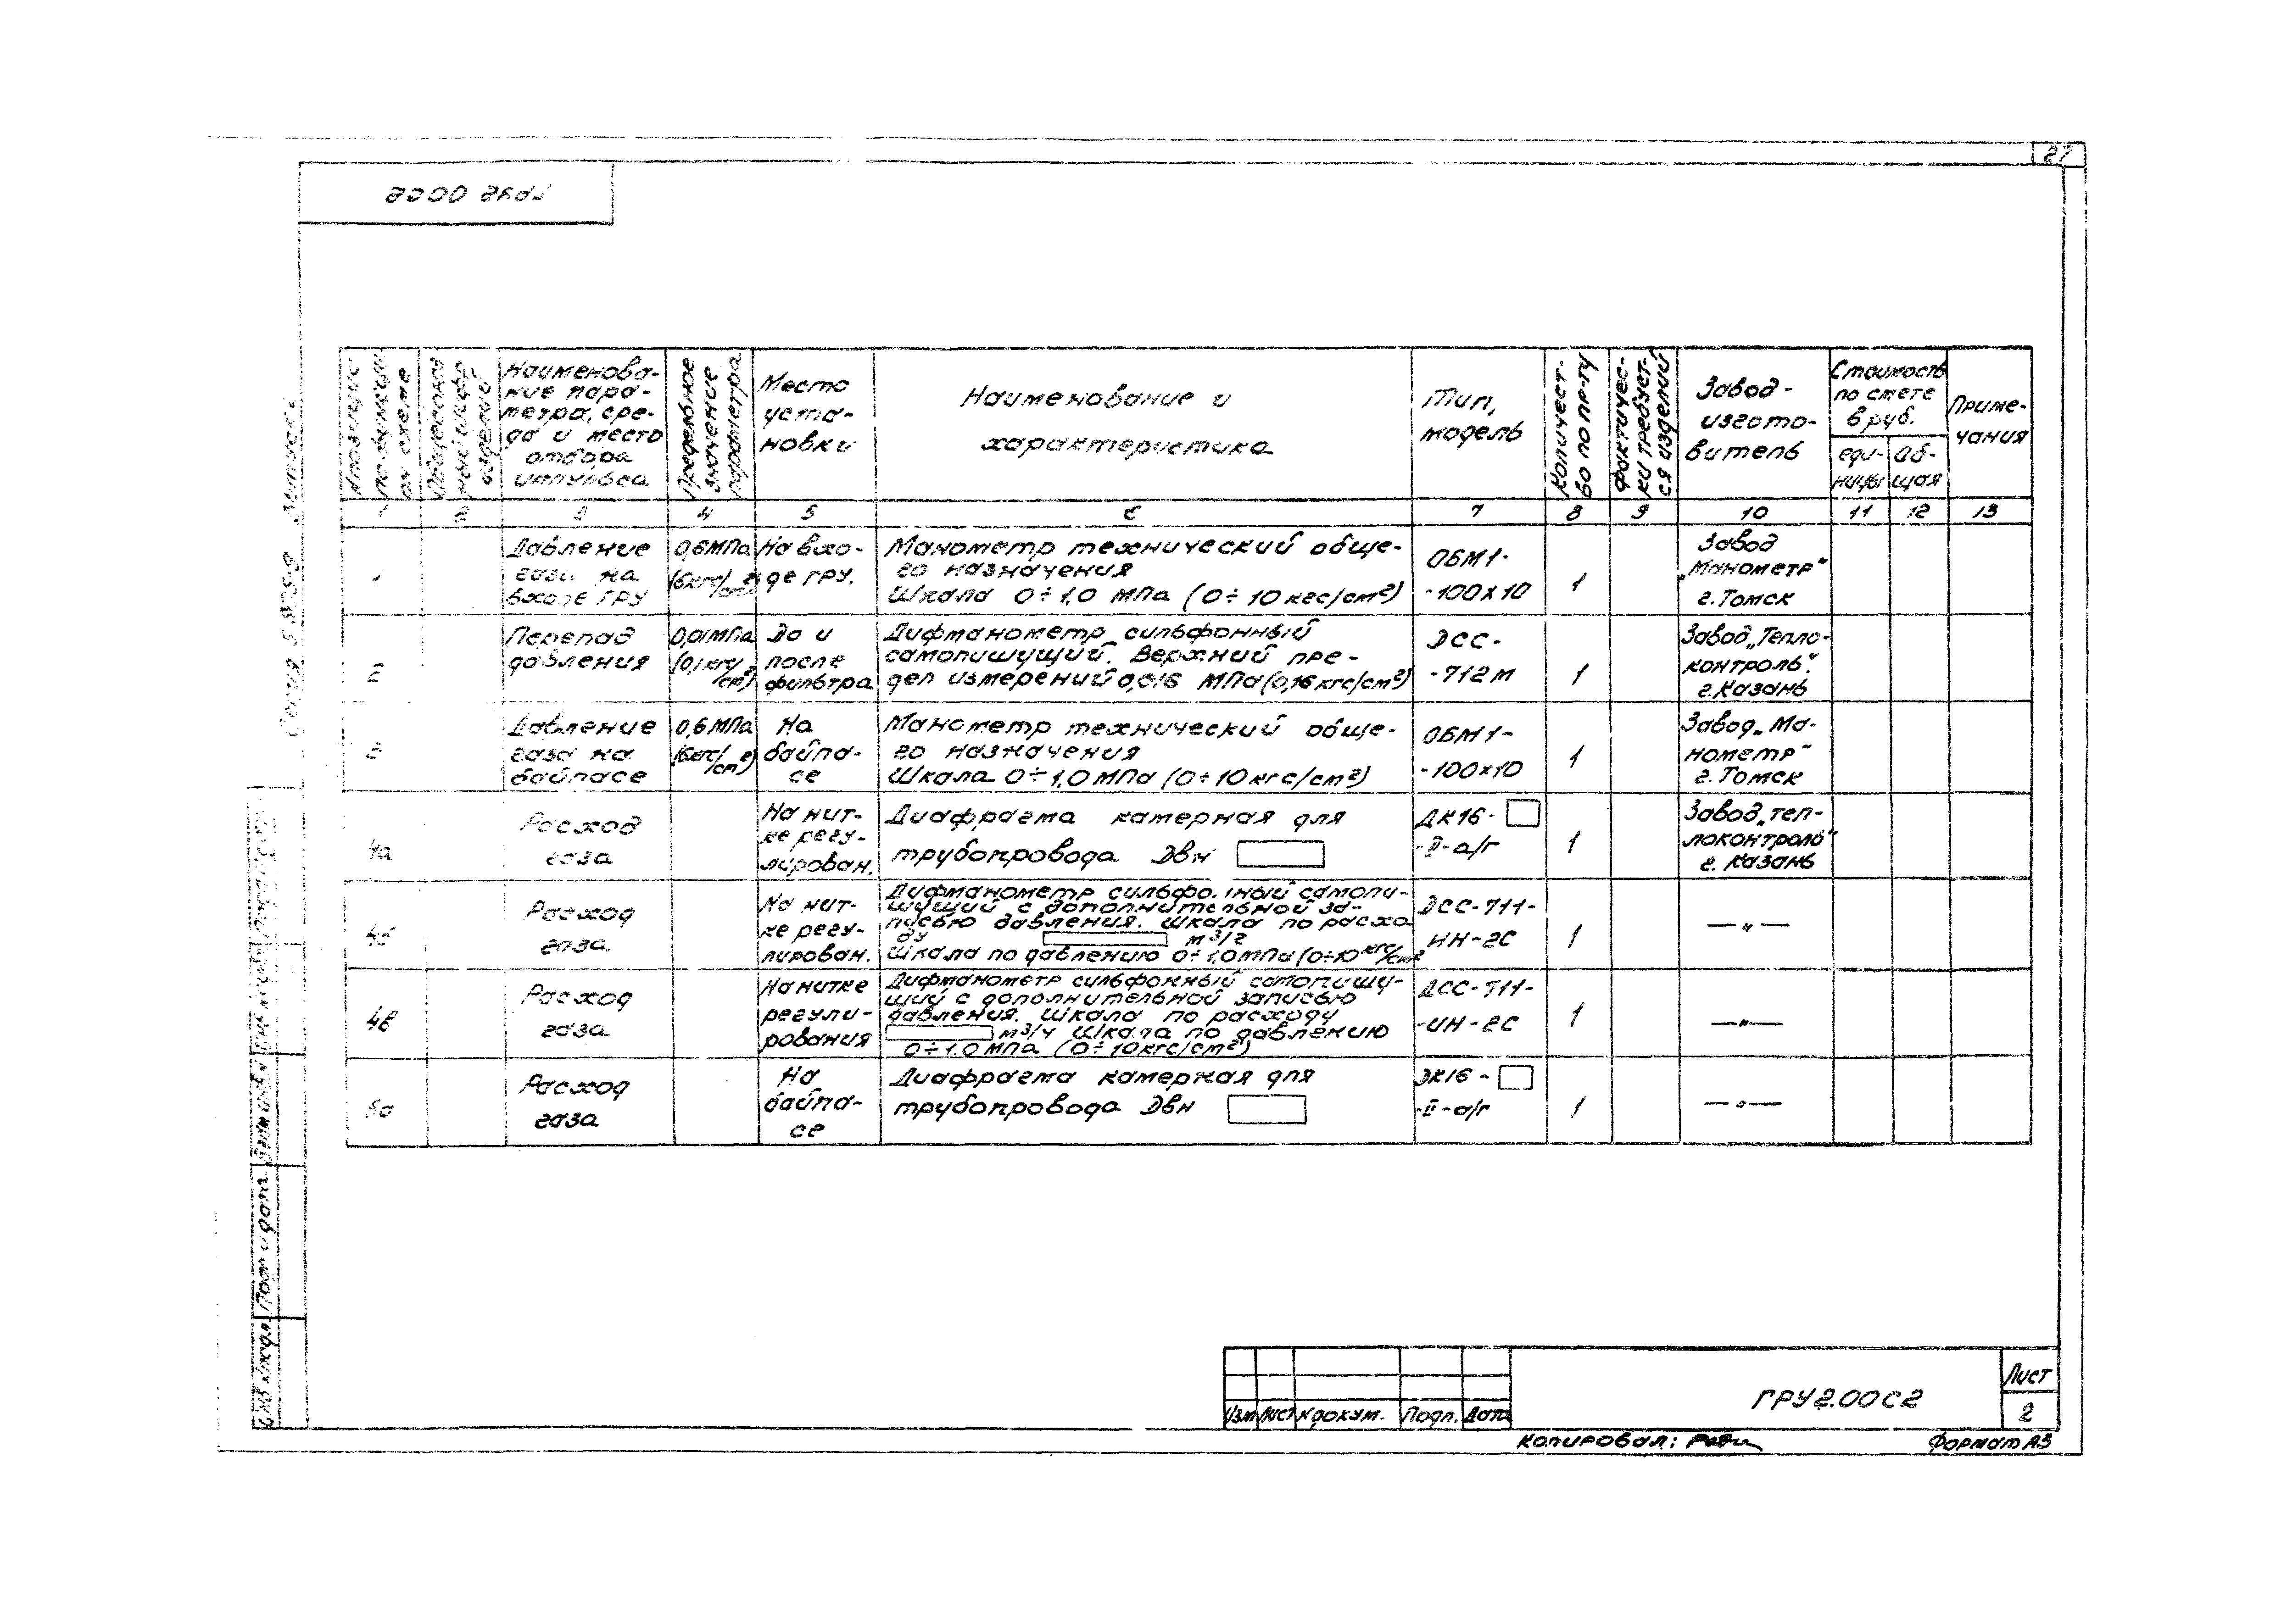 27
ГРУ2 00С2
№ позиции
по функци
он схеме
Наименова-
ние пара-
метра, сре-
да и место
отбора
импульса
Предельное
значение
параметра
Место
уста-
новки
Наименование и
характеристика
Тип,
модель
Количест-
во по пр-ту
Фактичес-
ки требует-
ся изделий
Завод-
изгото-
витель
Стоимость
по смете
в руб.
еди-
ницы
Об-
щая
Приме-
чания
1 2 3 4 5 6 7 8 9 10 11 12 13
1
Давление
газа на
входе ГРУ
0,6МПа
(6кгс/см²)
На вхо-
де ГРУ.
Манометр технический обще-
го назначения
Шкала 0÷1,0 МПа (0÷10кгс/см²)
ОБМ1-
-100х10
1
Завод
„Манометр“
г.Томск
2
Перепад
давления
0,01МПа
(0,1кгс/см²)
До и
после
фильтра
Дифманометр сильфонный
самопишущий. Верхний пре-
дел измерений 0,016 МПа(0,16кгс/см²)
ДСС-
-712м
1
Завод„Тепло-
контроль“.
г.Казань
Давление
газа на
байпасе
0,6МПа
(6кгс/см²)
На
байпа-
се
Манометр технический обще-
го назначения
Шкала 0÷1,0МПа (0÷10кгс/см²)
ОБМ1-
-100х10
1
Завод„Ма-
нометр“
г.Томск
4а
Расход
газа
На нит-
ке регу-
лирован.
Диафрагма камерная для
трубопровода Двн
ДК16-
-II-а/г
1
Завод„теп-
локонтроль“
г. Казань
4б
Расход
газа.
На нит-
ке регу-
лирован.
Дифманометр сильфонный самопи-
шущий с дополнительной за-
писью давления. Шкала по расхо
ду м³/г
Шкала по давлению 0÷1,0МПа(0÷10кгс/см²
ДСС-711-
ИН-2С
1
—„—
4в
Расход
газа
На нитке
регули-
рования
Дифманометр сильфонный самопишу-
щий с дополнительной записью
давления. Шкала по расходу
м³/ч Шкала по давлению
0÷1,0МПа (0÷10кгс/см²)
ДСС-711-
-ИН-2С
1
—„—
5а
Расход
газа
На
байпа-
се
Диафрагма камерная для
трубопровода Двн
ДК16-
-II-а/г
1
—„—
Подп и дата
Изм Лист №докум. Подп. Дата
ГРУ2.00С2
Лист
2
Копировал:
Формат А3